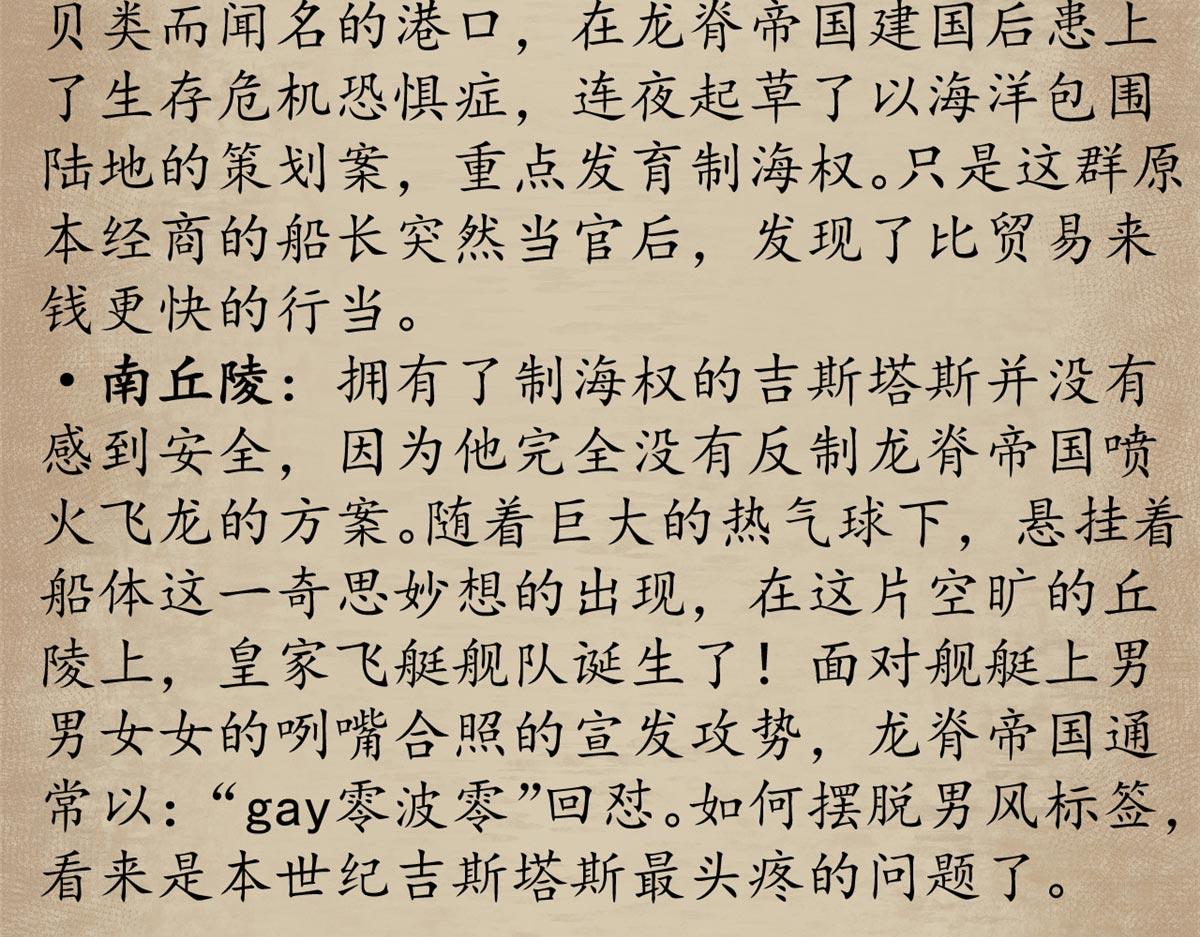 贝类而闻名的港口，在龙脊帝国建国后患上
了生存危机恐惧症，连夜起草了以海洋包围
陆地的策划案，重点发育制海权。只是这群原
本经商的船长突然当官后，发现了比贸易来
钱更快的行当。
·南丘陵：拥有了制海权的吉斯塔斯并没有
感到安全，因为他完全没有反制龙脊帝国喷
火飞龙的方案。随着巨大的热气球下，悬挂着
船体这一奇思妙想的出现，在这片空旷的丘
陵上，皇家飞艇舰队诞生了！面对舰艇上男
男女女的咧嘴合照的宣发攻势，龙脊帝国通
常以：“gay零波零”回怼。如何摆脱男风标签，
看来是本世纪吉斯塔斯最头疼的问题了。